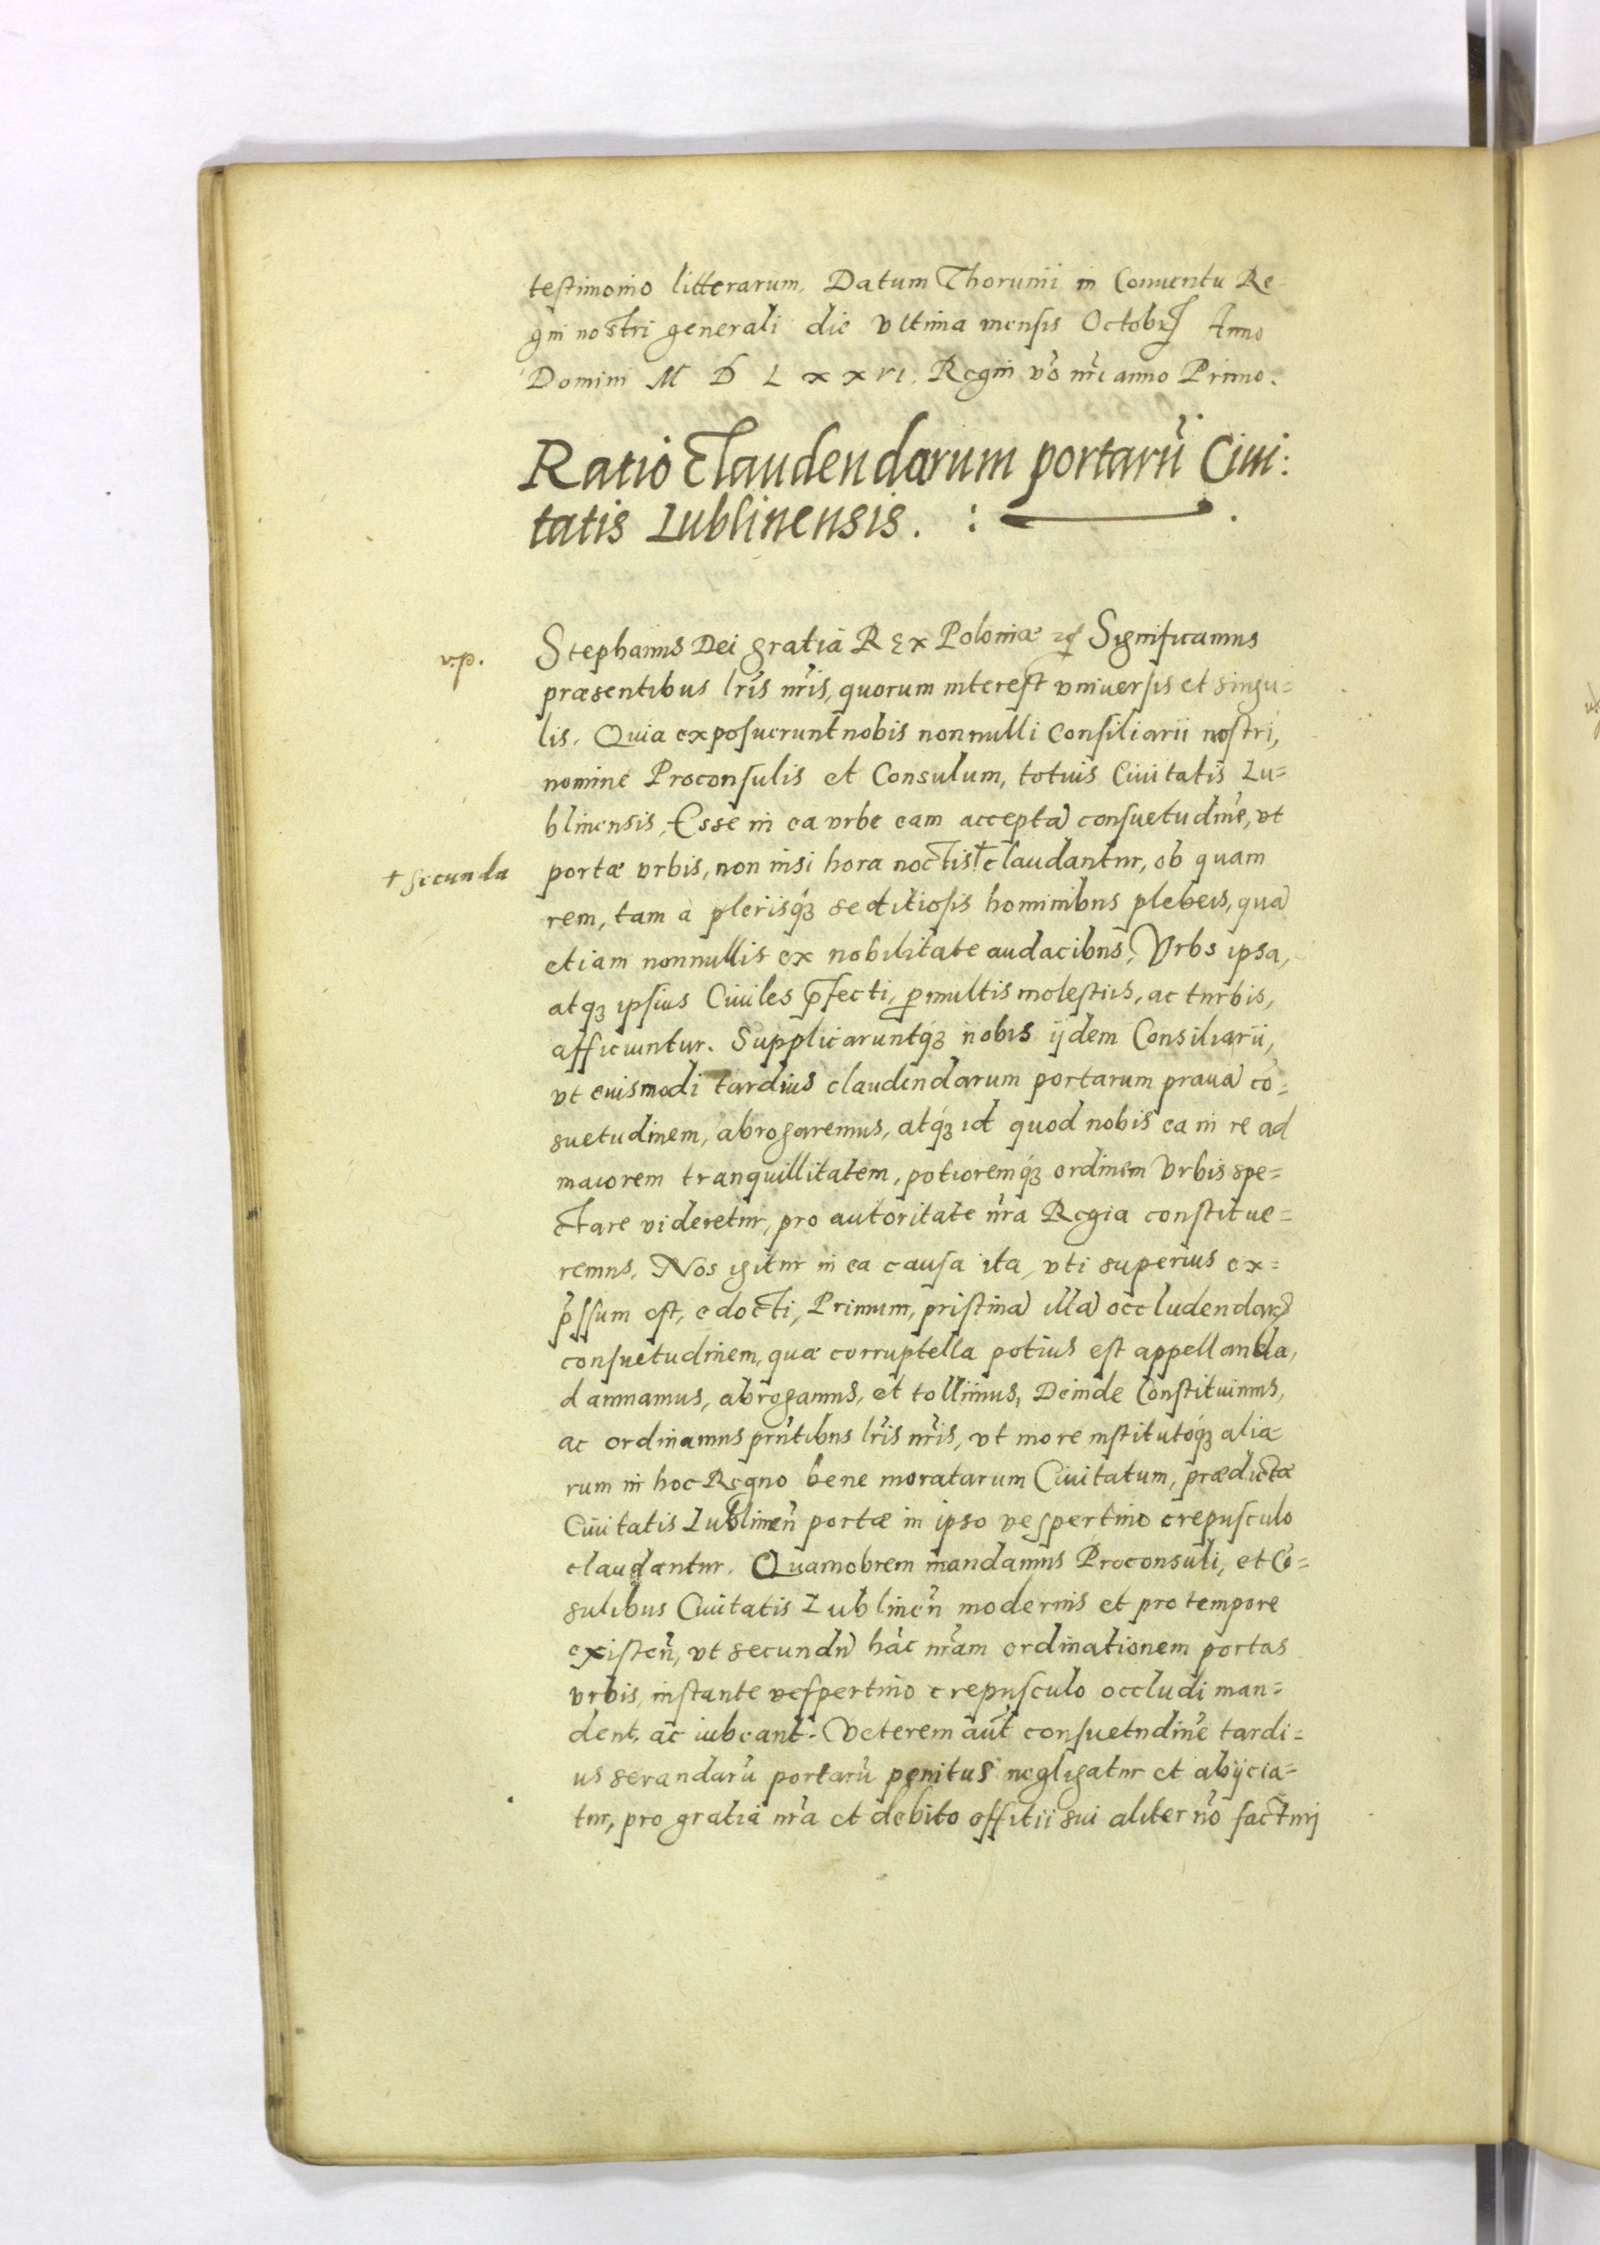 testimonio litterarum. Datum Thorunii in Conuentu Re-
gni nostri generali die vltima mensis Octobr͛ Anno
Domini M D L x x vi. Regni vo͛ nr͛i anno Primo.
Ratio Claudendarum portarū Ciui:
tatis Lublinensis. :
v.p.
Stephanus Dei gratia Rex Poloniæ zc̃ Significamus
præsentibus lr͛is nr͛is, quorum interest vniuersis et singu=
lis. Quia exposuerunt nobis nonnulli Consiliarii nostri,
nomine Proconsulis et Consulum, totius Ciuitatis Lu=
blinensis, Esse in ea vrbe eam acceptā consuetudinē, vt
† secunda
portæ vrbis, non nisi hora noctis† claudantur, ob quam
rem, tam à plerisq́ꝫ seditiosis hominibus plebeis, quā
etiam nonnullis ex nobilitate audacibus, Vrbs ipsa,
atqꝫ ipsius Ciuiles p̄fecti, ꝑmultis molestiis, ac turbis,
afficiuntur. Supplicaruntq́ꝫ nobis ijdem Consiliarii,
vt eiusmodi tardius claudendarum portarum prauā cō=
suetudinem, abrogaremus, atq́ꝫ id quod nobis ea in re ad
maiorem tranquillitatem, potioremq́ꝫ ordinem Vrbis spe=
ctare videretur, pro autoritate nr͛a Regia constitue=
remus. Nos igitur in ea causa ita, vti superius ex=
p͛ssum est, edocti, Primum, pristinā illā occludendarꝝ
consuetudinem, quæ corruptella potius est appellanda,
damnamus, abrogamus, et tollimus, Deinde Constituimus,
ac ordinamus prn͛tibus lr͛is nr͛is, vt more institutoq́ꝫ alia
rum in hoc Regno bene moratarum Ciuitatum, prædictæ
Ciuitatis Lublinen͛ portæ in ipso vespertino crepusculo
claudantur. Quamobrem mandamus Proconsuli, et Cō=
sulibus Ciuitatis Lublinen͛ modernis et pro tempore
existen͛, vt secundū hāc nr͛am ordinationem portas
vrbis, instante vespertino crepusculo occludi man=
dent, ac iubeant. Veterem aūt consuetudinē tardi=
us serandarū portarū penitus negligatur et abijcia=
tur, pro gratia nr͛a et debito offitii sui aliter nō facturj